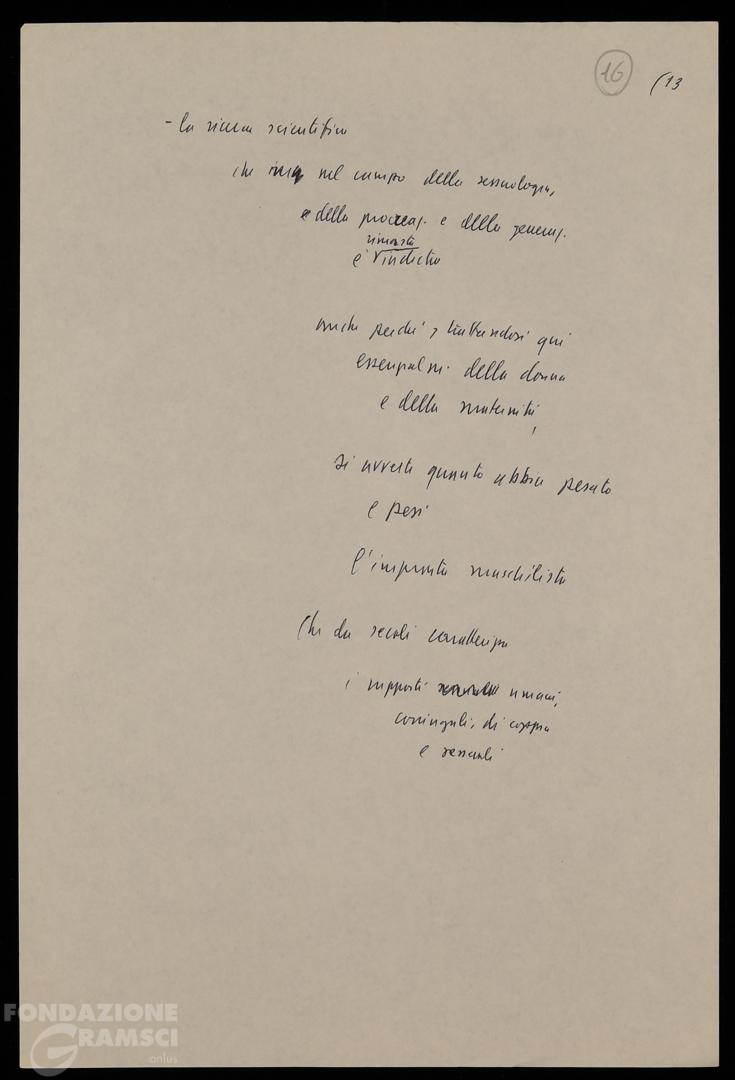 16 (13
- la ricerca scientifica
che nel campo della sessuologia,
e della procreaz. e della generaz.
rimasta
è indietro
anche perché, trattandosi qui
essenzialm. della donna
e della maternità,
si avverte quanto abbia pesato
e pesi
l'impronta maschilista
che da secoli caratterizza
i rapporti umani,
coniugali, di coppia
e sessuali
FONDAZIONE
GRAMSCI
onlus